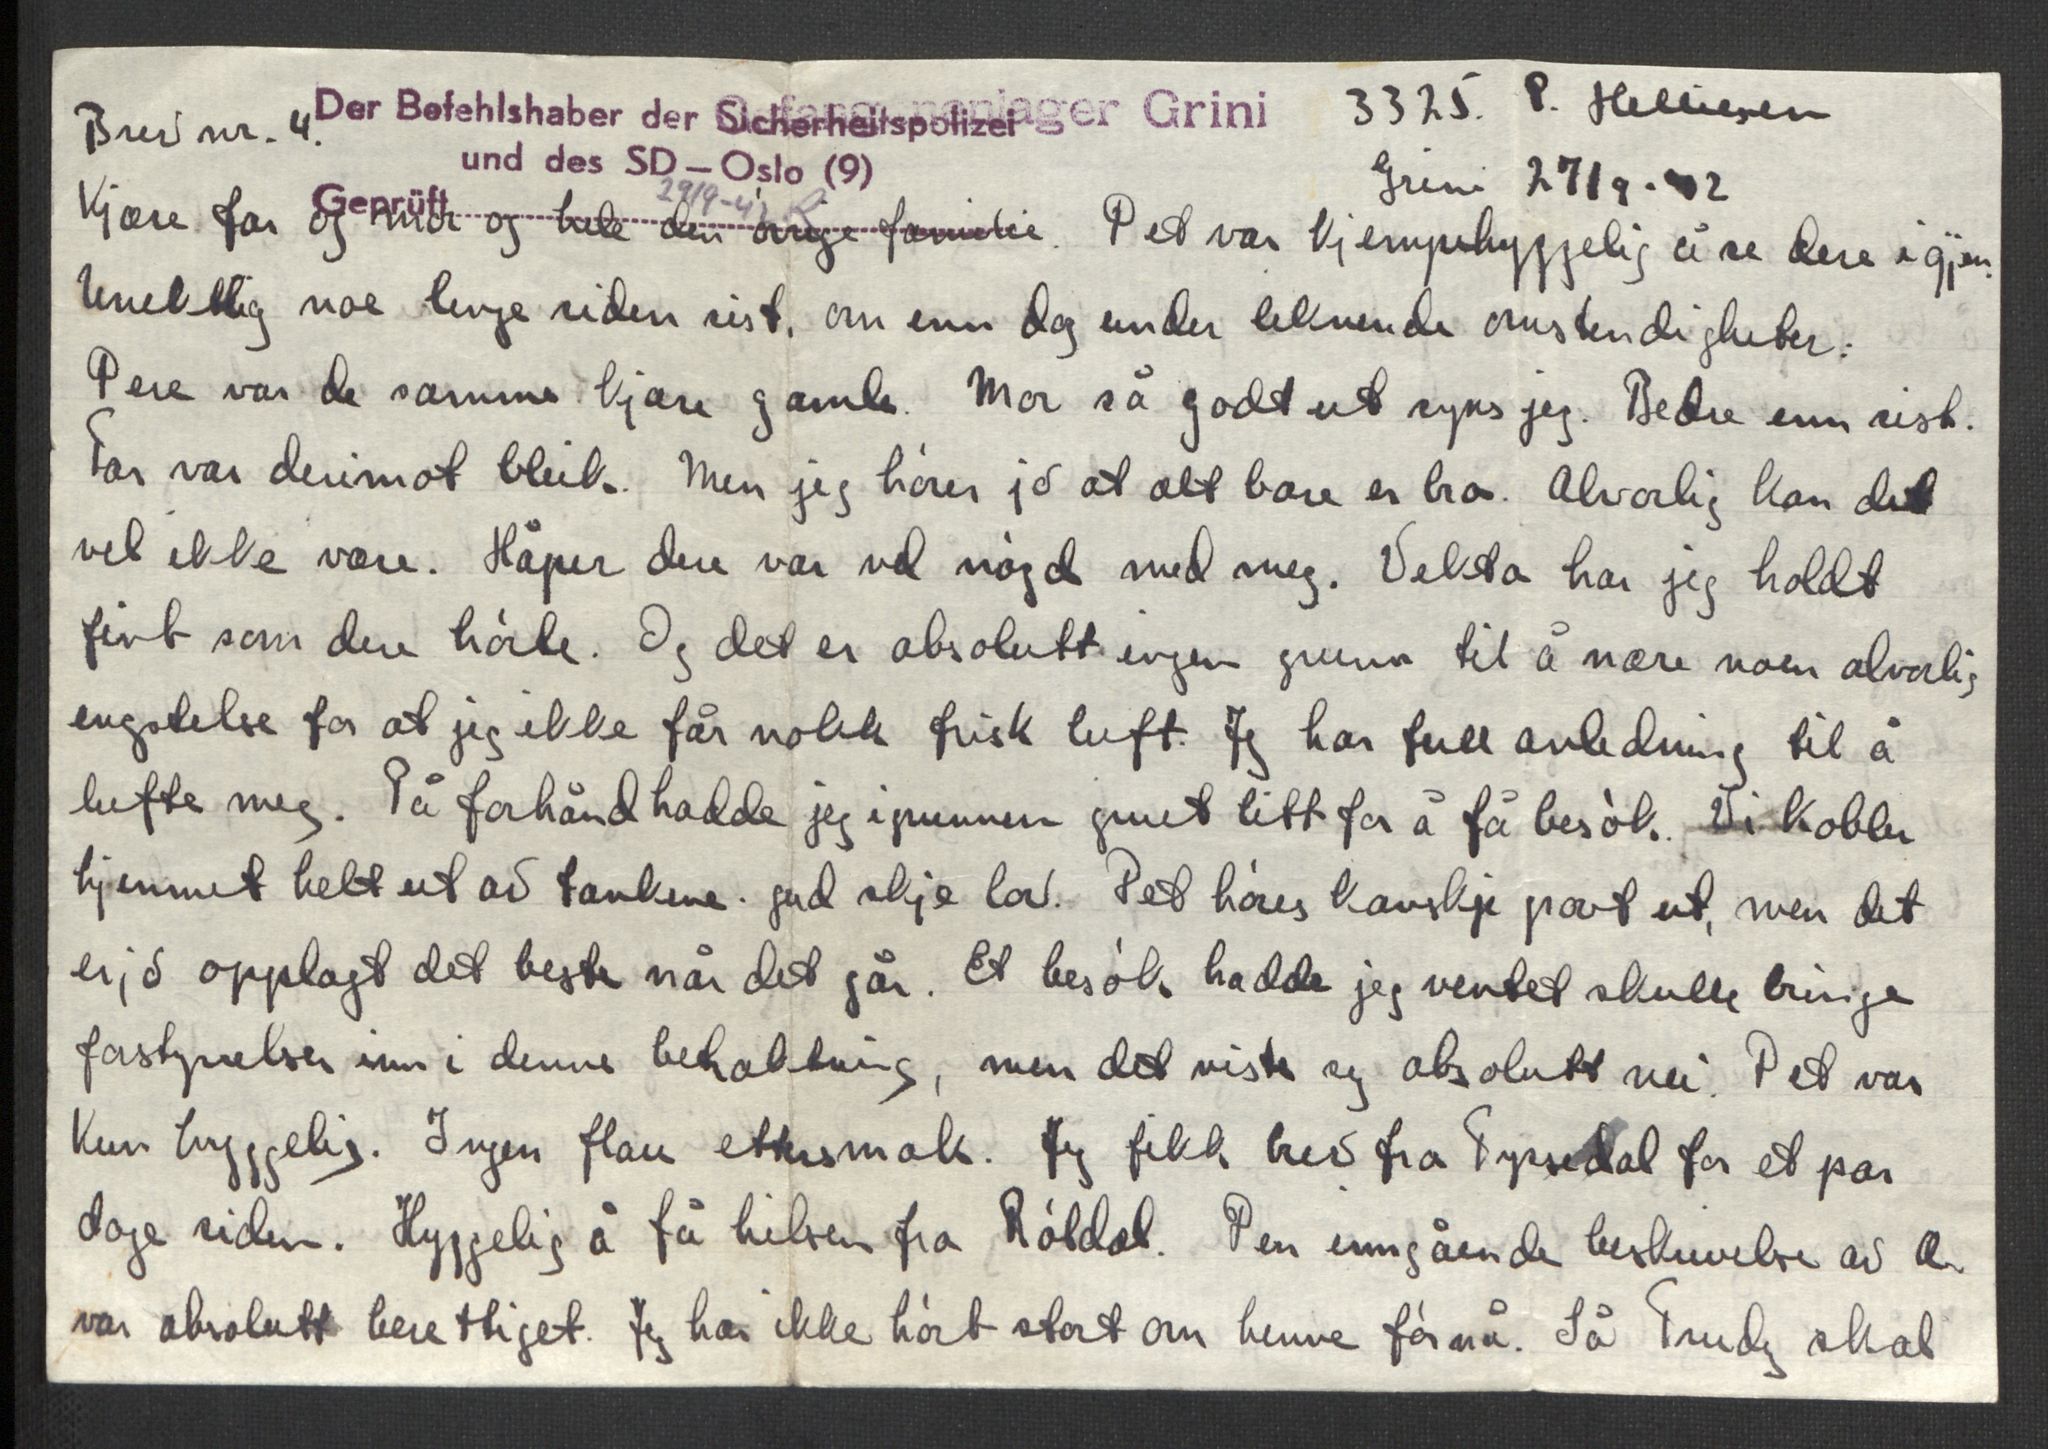 Gefangenenlager Grini
3325. P. Helliesen
Brev nr. 4.
Der Befehlshaber der Sicherheitspolizei
und des SD – Oslo (9)
Geprüft
29/9-42
Grini 27/9-42
Kjære far og mor og hele den øvrige familie. Det var kjempehyggelig å se dere igjen.
Unektlig noe lenge siden sist, om enn dog under leknende omstendigheter.
Dere var de samme kjære gamle. Mor så godt ut syns jeg. Bedre enn sist.
Far var derimot bleik. Men jeg hører jo at alt bare er bra. Alvorlig kan det
vel ikke være. Håper dere var vel nøgd med meg. Vekta har jeg holdt
fint som dere hørte. Og det er absolutt ingen grunn til å nære noen alvorlig
engstelse for at jeg ikke får nokk frisk luft. Jeg har full anledning til å
lufte meg. På forhånd hadde jeg igrunnen gruet litt for å få besøk. Vi kobler
hjemmet helt ut av tankene. gud skje lov. Det høres kanskje rart ut, men det
er jo opplagt det beste når det går. Et besøk hadde jeg ventet skulle bringe
forstyrrelser inn i denne beholdning, men det viste seg absolutt nei. Det var
kun hyggelig. Ingen flau ettersmak. Jeg fikk brev fra Tyssedal for et par
dage siden. Hyggelig å få hilsen fra Røldal. Den inngående beskrivelse av A.
var absolutt berettiget. Jeg har ikke hørt stort om henne før nå. Så Trudy skal